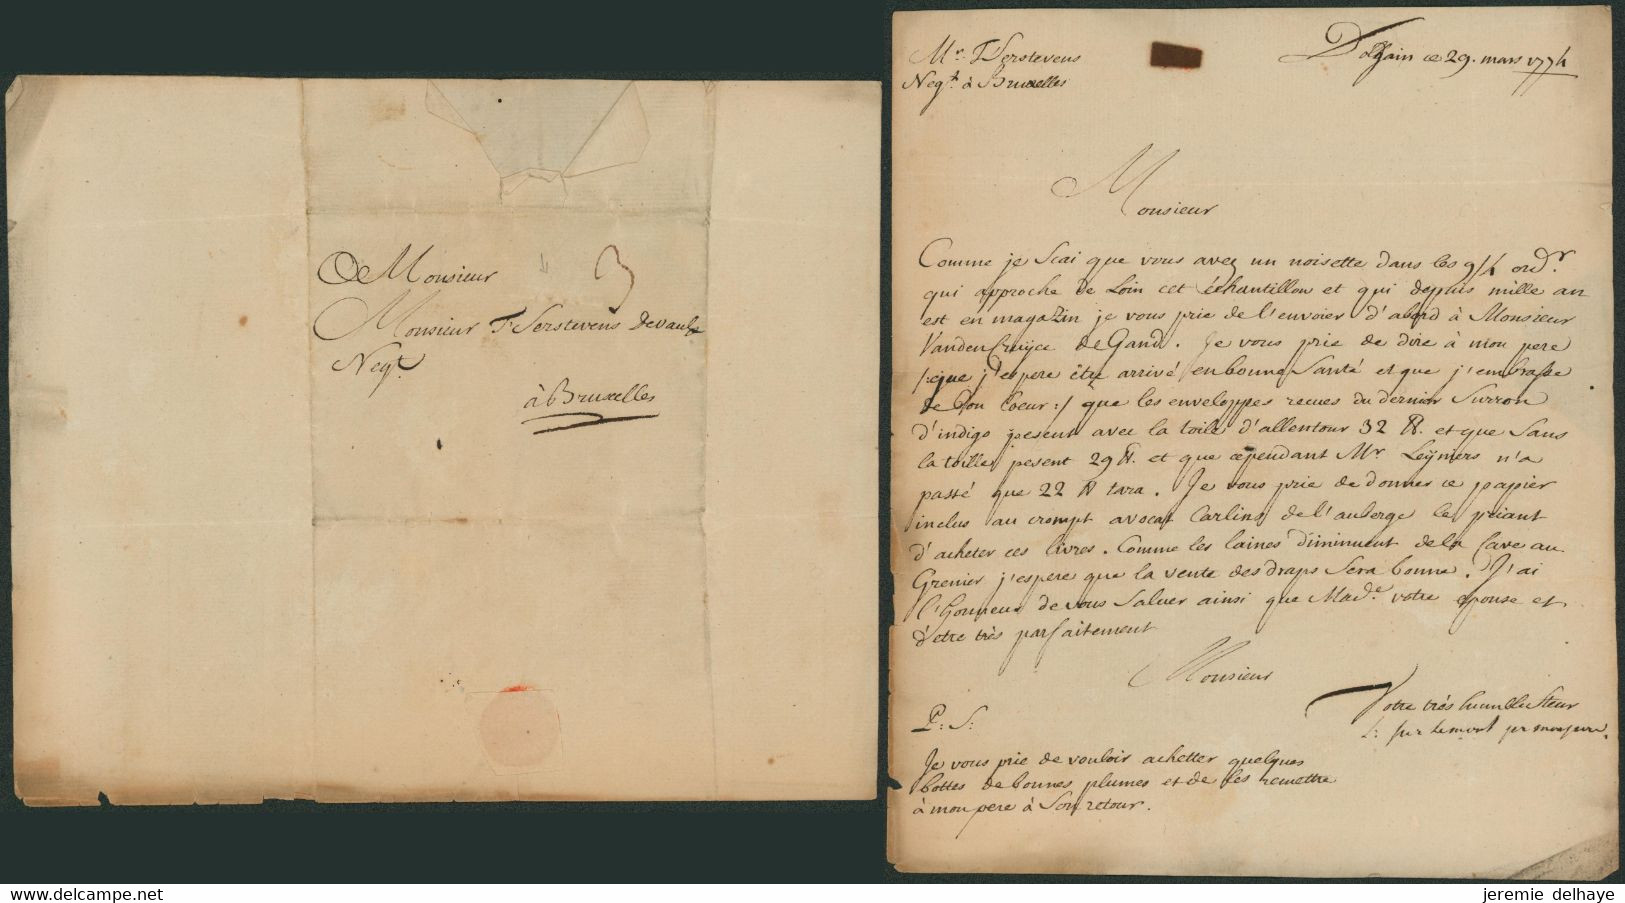 A Monsieur
Monsieur T'Serstevens Devaulx
Negt.
à Bruxelles
3
Mr. T'Serstevens
Negt. à Bruxelles
Dolhain ce 29. mars 1774
Monsieur
Comme je Scai que vous avez un noisette dans les 9/4 ordr.
qui approche de Loin cet échantillon et qui depuis mille an
est en magazin je vous prie de l'envoier d'abord à Monsieur
VandenCruÿce de Gand. Je vous prie de dire à mon pere
/:que j'espere être arrivé en bonne Santé et que j'embrasse
de bon Coeur:/ que les enveloppes recues du dernier Surron
d'indigo pesent avec la toile d'allentour 32 ℔. et que Sans
la toille pesent 29 ℔. et que cependant Mr. Leÿniers n'a
passé que 22 ℔ tara. Je vous prie de donner ce papier
inclus au crompt avocat Carlins de l'auberge le priant
d'acheter ces livres. Comme les laines diminuent de la Cave au
Grenier j'espere que la vente des draps Sera bonne. J'ai
l'Honneur de vous Saluer ainsi que Made. votre epouse et
d'etre très parfaitement
Monsieur
Votre très humble Steur
pr mon pere.
P: S:
Je vous prie de vouloir achetter quelques
bottes de bonnes plumes et de les remettre
à mon pere à Son retour.
delcampe.net
jeremie delhaye